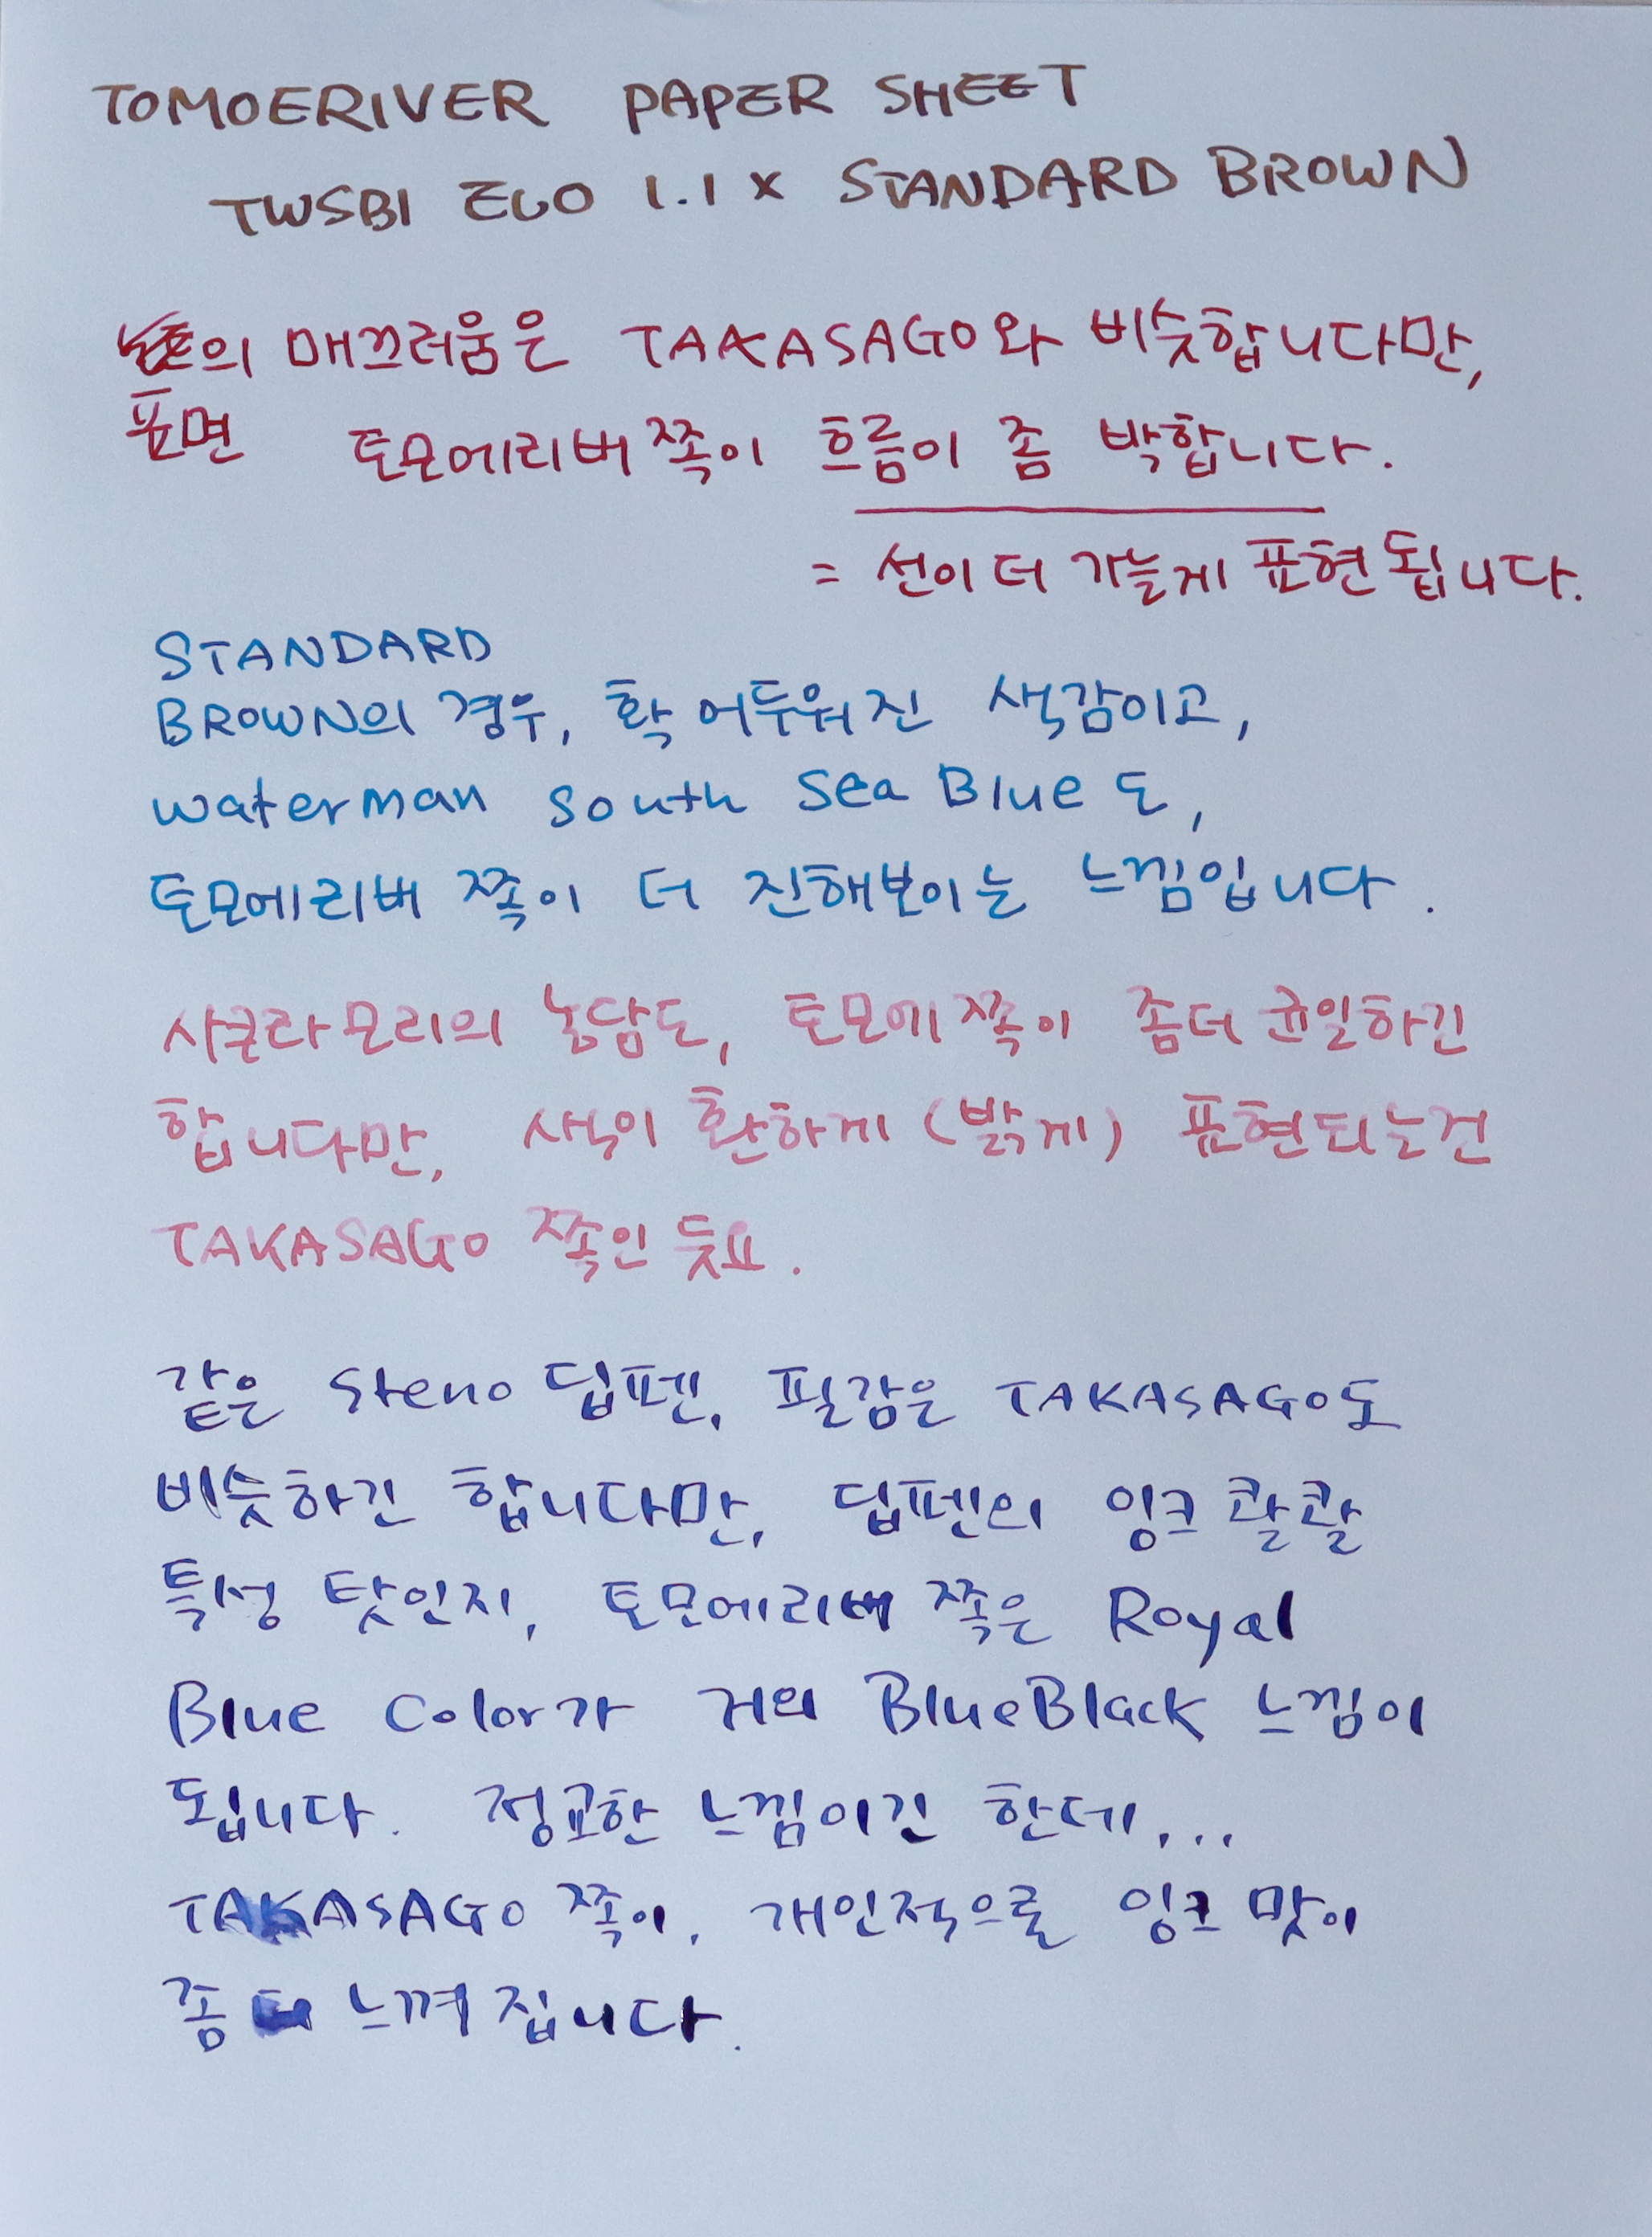 TOMOERIVER PAPER SHEET
TWSBI ECO 1.1 x STANDARD BROWN
의 매끄러움은 TAKASAGO와 비슷합니다만,
표면 토모에리버 쪽이 흐름이 좀 박합니다.
= 선이 더 가늘게 표현됩니다.
STANDARD
BROWN의 경우, 확 어두워진 색감이고,
waterman south sea Blue도,
토모에리버 쪽이 더 진해보이는 느낌입니다.
사쿠라모리의 농담도, 토모에 쪽이 좀더 균일하긴
합니다만, 색이 환하게 (밝게) 표현되는건
TAKASAGO 쪽인 듯요.
같은 Steno 딥펜, 필감은 TAKASAGO도
비슷하긴 합니다만, 딥펜의 잉크 콸콸
특성 탓인지, 토모에리버 쪽은 Royal
Blue Color가 거의 BlueBlack 느낌이
됩니다. 정교한 느낌이긴 한데...
TAKASAGO 쪽이, 개인적으로 잉크 맛이
좀 더 느껴집니다.